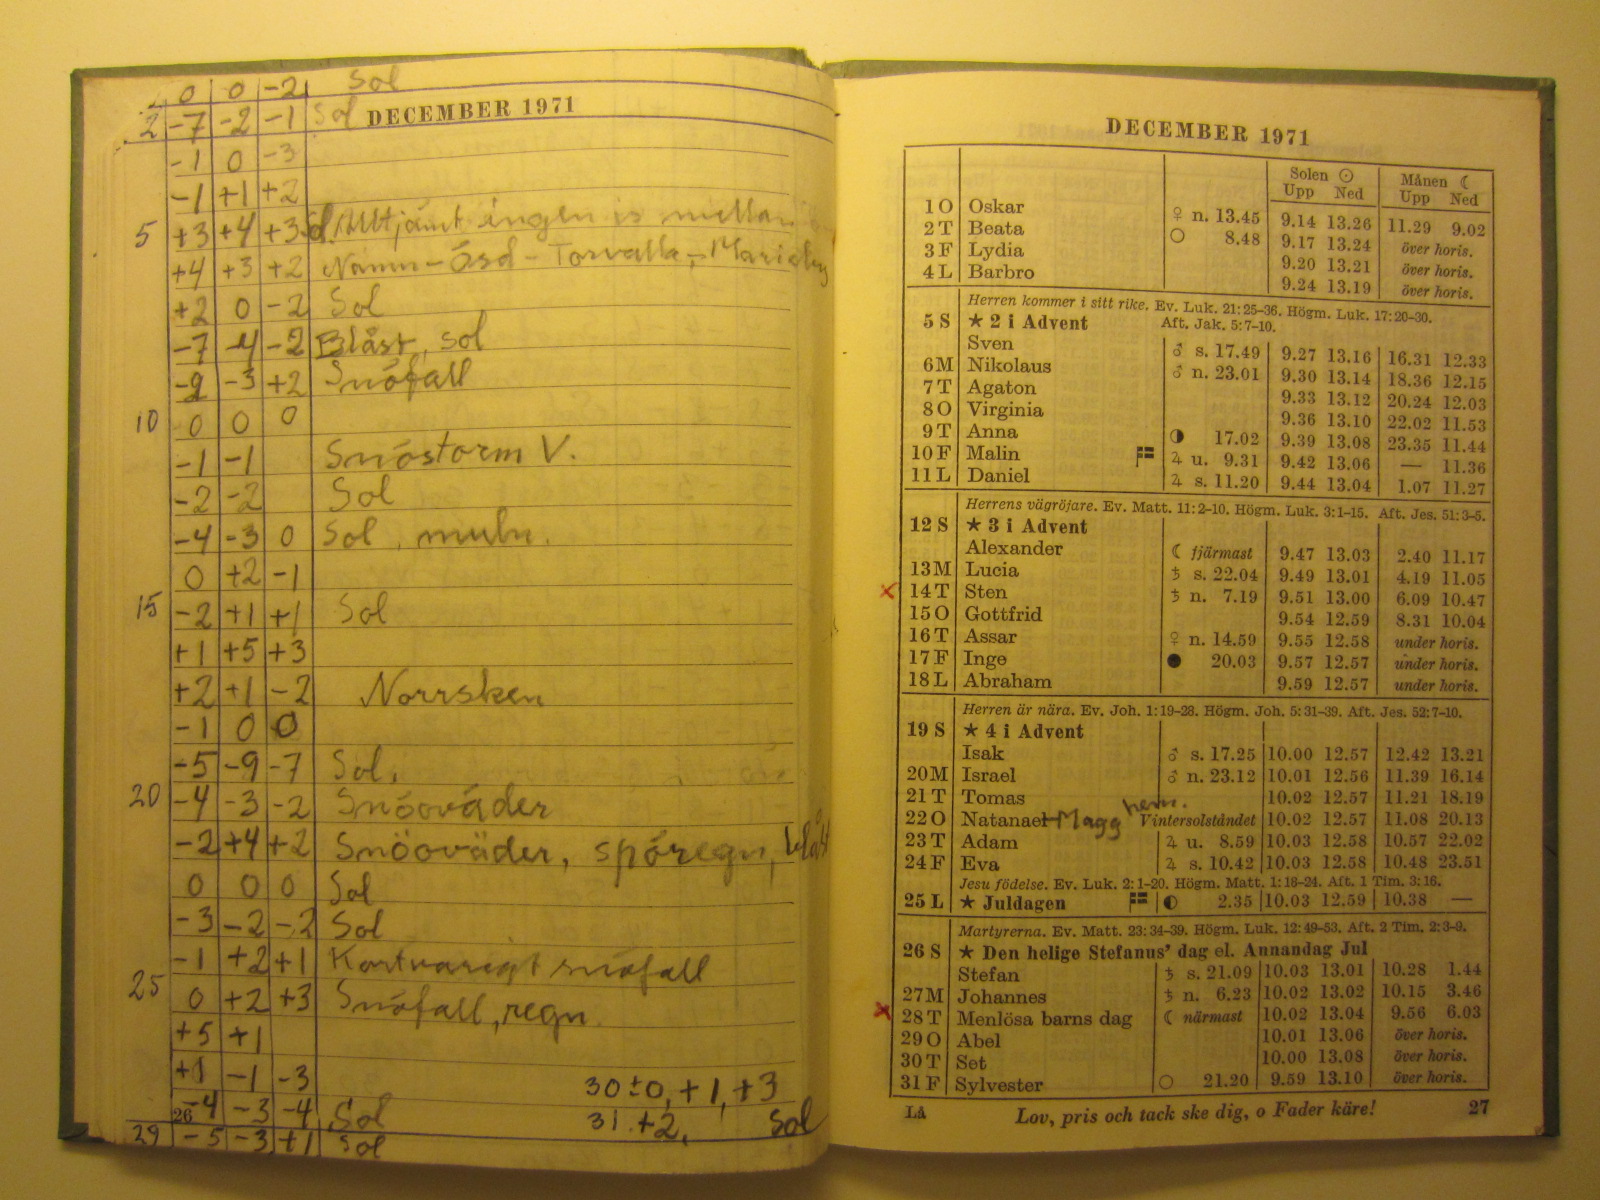 0 0 -2 Sol
2 -7 -2 -1 Sol DECEMBER 1971
-1 0 -3
-1 +1 +2
5 +3 +4 +3 Sol, Alltjämt ingen is mellan
+4 +3 +2 Namn-Ösd-Torvalla-Marieby
+2 0 -2 Sol
-7 -4 -2 Blåst, sol
-9 -3 +2 Snöfall
10 0 0 0
-1 -1 Snöstorm V.
-2 -2 Sol
-4 -3 0 Sol, muln.
0 +2 -1
15 -2 +1 +1 Sol
+1 +5 +3
+2 +1 -2 Norrsken
-1 0 0
-5 -9 -7 Sol.
20 -4 -3 -2 Snöoväder
-2 +4 +2 Snöoväder, spöregn, blåst
0 0 0 Sol
-3 -2 -2 Sol
-1 +2 +1 Kortvarigt snöfall
25 0 +2 +3 Snöfall, regn.
+5 +1
+1 -1 -3 30 ±0, +1, +3
26 -4 -3 -4 Sol 31 +2, Sol
29 -5 -3 +1 Sol
DECEMBER 1971
Solen ☉ Månen ☾
Upp Ned Upp Ned
1 O Oskar ♀ n. 13.45 9.14 13.26 11.29 9.02
2 T Beata ○ 8.48 9.17 13.24 över horis.
3 F Lydia 9.20 13.21 över horis.
4 L Barbro 9.24 13.19 över horis.
Herren kommer i sitt rike. Ev. Luk. 21:25-36. Högm. Luk. 17:20-30.
5 S ★ 2 i Advent Aft. Jak. 5:7-10.
Sven ♂ s. 17.49 9.27 13.16 16.31 12.33
6 M Nikolaus ♂ n. 23.01 9.30 13.14 18.36 12.15
7 T Agaton 9.33 13.12 20.24 12.03
8 O Virginia 9.36 13.10 22.02 11.53
9 T Anna ◑ 17.02 9.39 13.08 23.35 11.44
10 F Malin ♃ u. 9.31 9.42 13.06 — 11.36
11 L Daniel ♃ s. 11.20 9.44 13.04 1.07 11.27
Herrens vägröjare. Ev. Matt. 11:2-10. Högm. Luk. 3:1-15. Aft. Jes. 51:3-5.
12 S ★ 3 i Advent
Alexander ☾ fjärmast 9.47 13.03 2.40 11.17
13 M Lucia ♄ s. 22.04 9.49 13.01 4.19 11.05
x 14 T Sten ♄ n. 7.19 9.51 13.00 6.09 10.47
15 O Gottfrid 9.54 12.59 8.31 10.04
16 T Assar ♀ n. 14.59 9.55 12.58 under horis.
17 F Inge ● 20.03 9.57 12.57 under horis.
18 L Abraham 9.59 12.57 under horis.
Herren är nära. Ev. Joh. 1:19-28. Högm. Joh. 5:31-39. Aft. Jes. 52:7-10.
19 S ★ 4 i Advent
Isak ♂ s. 17.25 10.00 12.57 12.42 13.21
20 M Israel ♂ n. 23.12 10.01 12.56 11.39 16.14
21 T Tomas 10.02 12.57 11.21 18.19
22 O Natanael Magg hem. Vintersolståndet 10.02 12.57 11.08 20.13
23 T Adam ♃ u. 8.59 10.03 12.58 10.57 22.02
24 F Eva ♃ s. 10.42 10.03 12.58 10.48 23.51
Jesu födelse. Ev. Luk. 2:1-20. Högm. Matt. 1:18-24. Aft. 1 Tim. 3:16.
25 L ★ Juldagen ◐ 2.35 10.03 12.59 10.38 —
Martyrerna. Ev. Matt. 23:34-39. Högm. Luk. 12:49-53. Aft. 2 Tim. 2:3-9.
26 S ★ Den helige Stefanus' dag el. Annandag Jul
Stefan ♄ s. 21.09 10.03 13.01 10.28 1.44
27 M Johannes ♄ n. 6.23 10.02 13.02 10.15 3.46
x 28 T Menlösa barns dag ☾ närmast 10.02 13.04 9.56 6.03
29 O Abel 10.01 13.06 över horis.
30 T Set 10.00 13.08 över horis.
31 F Sylvester ○ 21.20 9.59 13.10 över horis.
Lå Lov, pris och tack ske dig, o Fader käre! 27